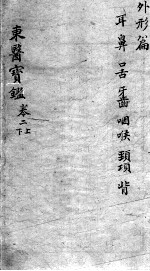 外形篇
耳鼻口舌牙齒咽喉頸項背
東醫寶鑑 卷二上下